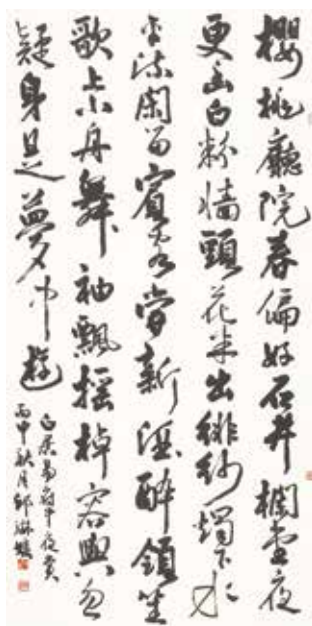 櫻桃廳院春偏好石井欄堂夜
更幽白粉墙頭花半出緋紗燭下水
平流閑留賓客嘗新酒醉領笙
歌上小舟舞袖飄摇棹容與忽
疑身是夢中遊
白居易府中夜賞
丙申秋月